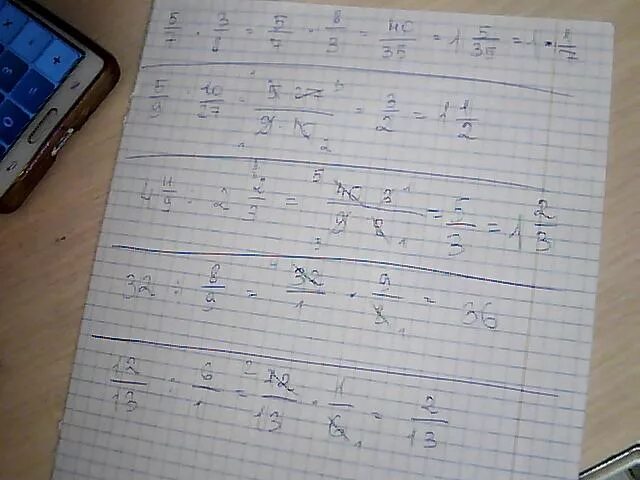 5/7 : 3/8 = 5/7 · 8/3 = 40/35 = 1 5/35 = 1 1/7
= 3/2 = 1 1/2
4 4/9 : 2 2/3 = 40 · 3 / 9 · 8 = 5/3 = 1 2/3
32 : 8/9 = 32/1 · 9/8 = 36
12/13 : 6/1 = 12/13 · 1/6 = 2/13